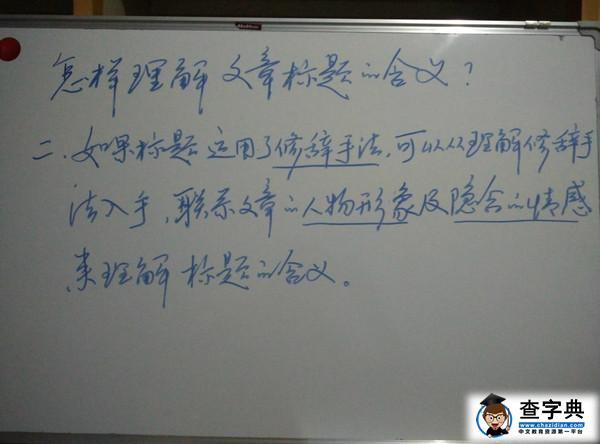 怎样理解文章标题的含义？
二、如果标题运用了修辞手法，可以从理解修辞手
法入手，联系文章的人物形象及隐含的情感
来理解标题的含义。
查字典
www.chazidian.com
中文教育资源第一平台